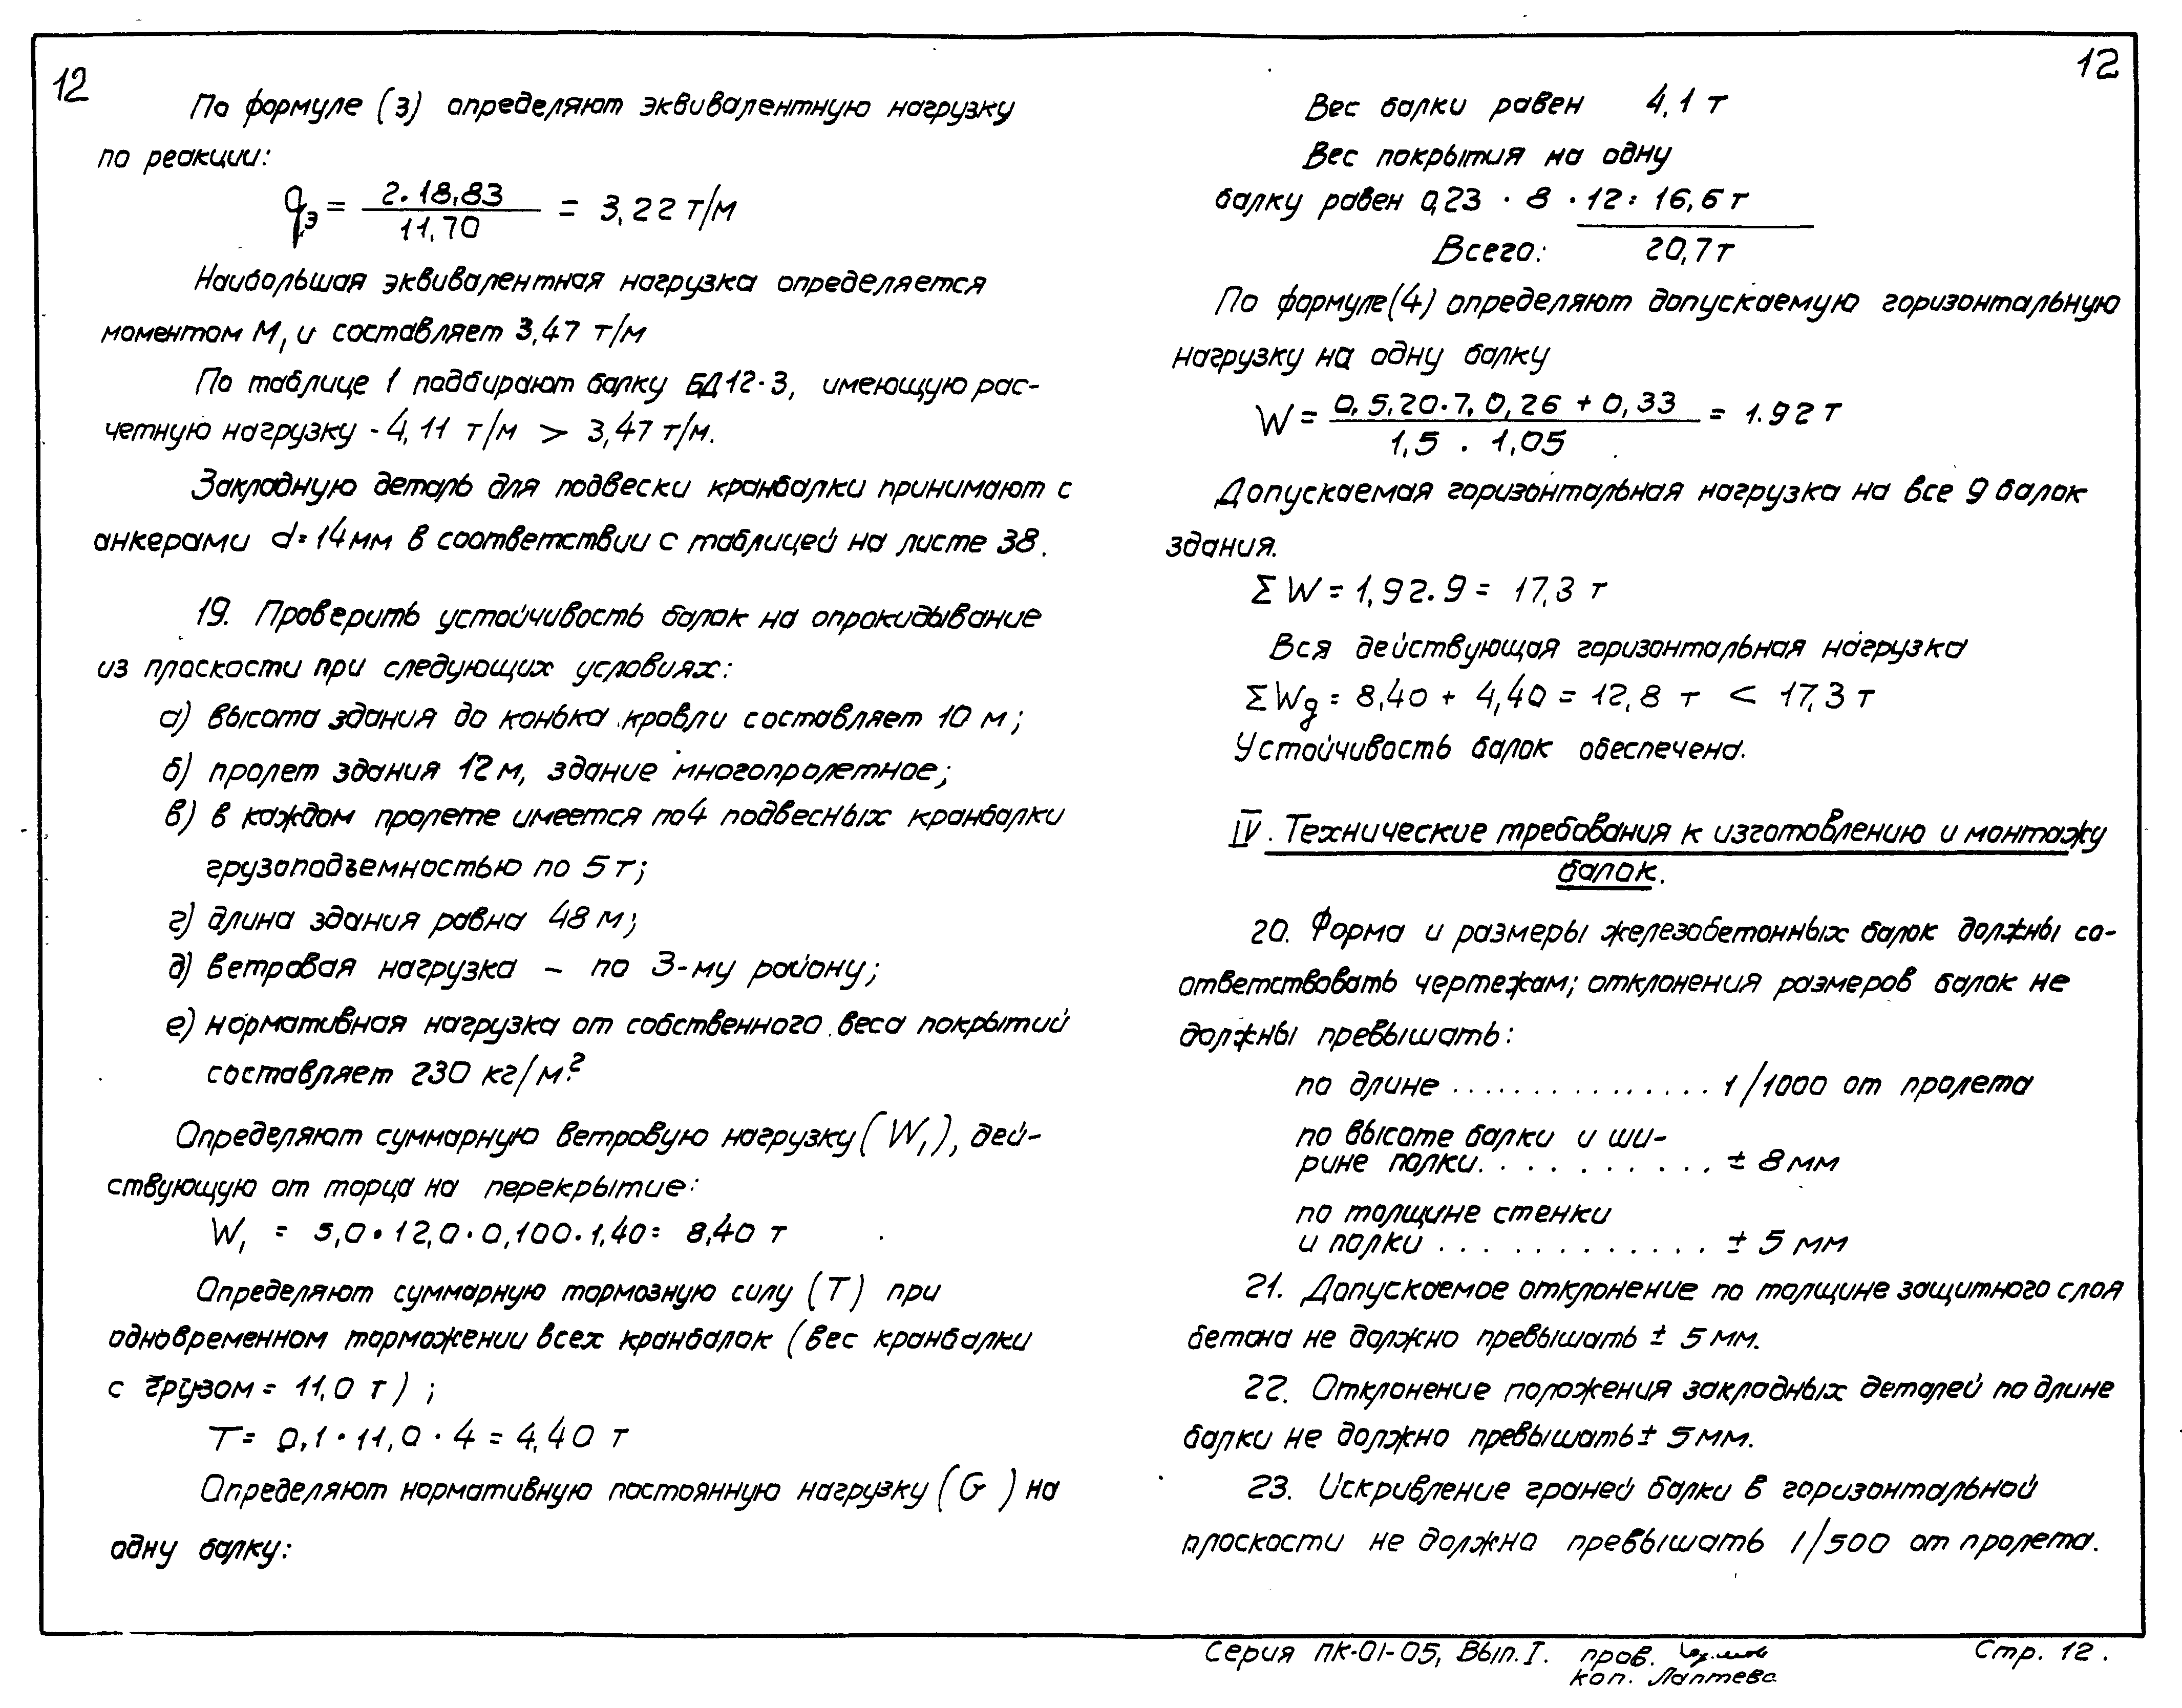 12
По формуле (3) определяют эквивалентную нагрузку
по реакции:
qэ = 2·18,83 / 11,70 = 3,22 т/м
Наибольшая эквивалентная нагрузка определяется
моментом M₁ и составляет 3,47 т/м
По таблице 1 подбирают балку БД12-3, имеющую рас-
четную нагрузку - 4,11 т/м > 3,47 т/м.
Закладную деталь для подвески кранбалки принимают с
анкерами d=14мм в соответствии с таблицей на листе 38.
19. Проверить устойчивость балок на опрокидывание
из плоскости при следующих условиях:
а) высота здания до конька кровли составляет 10 м;
б) пролет здания 12м, здание многопролетное;
в) в каждом пролете имеется по 4 подвесных кранбалки
грузоподъемностью по 5т;
г) длина здания равна 48 м;
д) ветровая нагрузка – по 3-му району;
е) нормативная нагрузка от собственного веса покрытий
составляет 230 кг/м²
Определяют суммарную ветровую нагрузку (W₁), дей-
ствующую от торца на перекрытие:
W₁ = 5,0·12,0·0,100·1,40= 8,40 т
Определяют суммарную тормозную силу (Т) при
одновременном торможении всех кранбалок (вес кранбалки
с грузом = 11,0 т);
Т= 0,1·11,0·4 = 4,40 т
Определяют нормативную постоянную нагрузку (G) на
одну балку:
12
Вес балки равен 4,1 т
Вес покрытия на одну
балку равен 0,23 · 8 · 12 = 16,6т
Всего: 20,7т
По формуле(4) определяют допускаемую горизонтальную
нагрузку на одну балку
W = 0,5.20.7.0,26 + 0,33 / 1,5 . 1,05 = 1.92 т
Допускаемая горизонтальная нагрузка на все 9 балок
здания.
ΣW = 1,92.9 = 17,3 т
Вся действующая горизонтальная нагрузка
ΣWд = 8,40 + 4,40 = 12,8 т < 17,3 т
Устойчивость балок обеспечена.
IV. Технические требования к изготовлению и монтажу
балок.
20. Форма и размеры железобетонных балок должны со-
ответствовать чертежам; отклонения размеров балок не
должны превышать:
по длине ............... 1/1000 от пролета
по высоте балки и ши-
рине полки........... ± 8мм
по толщине стенки
и полки ............. ± 5 мм
21. Допускаемое отклонение по толщине защитного слоя
бетона не должно превышать ± 5мм.
22. Отклонение положения закладных деталей по длине
балки не должно превышать ± 5мм.
23. Искривление граней балки в горизонтальной
плоскости не должно превышать 1/500 от пролета.
Серия ПК-01-05, Вып.I. пров. Стр. 12.
коп. Лаптева